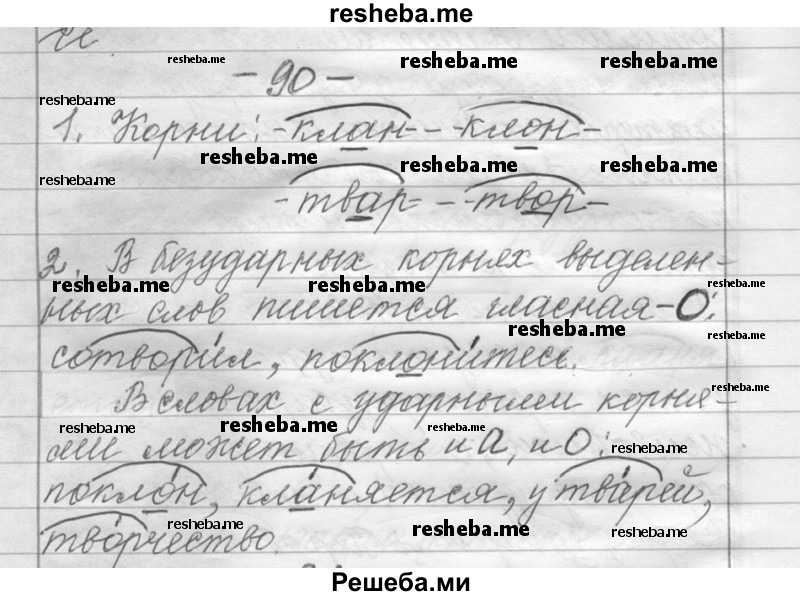 resheba.me
- 90 -
1. Корни: -клан- -клон-
-твар- -твор-
2. В безударных корнях выделен-
ных слов пишется гласная -О:
сотворил, поклонитесь.
В словах с ударными корня-
ми может быть и А, и О:
поклон, кланяется, у тварей,
творчество.
Решеба.ми